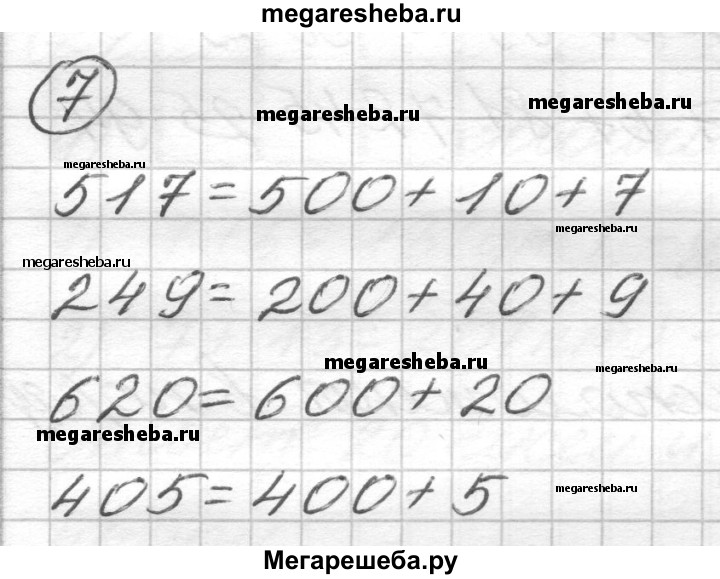 megaresheba.ru
7
megaresheba.ru
megaresheba.ru
megaresheba.ru
517 = 500 + 10 + 7
megaresheba.ru
megaresheba.ru
249 = 200 + 40 + 9
megaresheba.ru
megaresheba.ru
620 = 600 + 20
megaresheba.ru
405 = 400 + 5
megaresheba.ru
Мегарешеба.ру